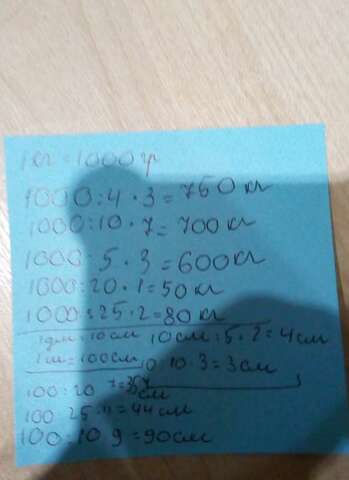 1 кг = 1000 гр
1000 : 4 · 3 = 750 кг
1000 : 10 · 7 = 700 кг
1000 : 5 · 3 = 600 кг
1000 : 20 · 1 = 50 кг
1000 : 25 · 2 = 80 кг
1 дм = 10 см 10 см : 5 · 2 = 4 см
1 м = 100 см 10 : 10 · 3 = 3 см
100 : 20 · 7 = 35 см
100 : 25 · 11 = 44 см
100 : 10 9 = 90 см